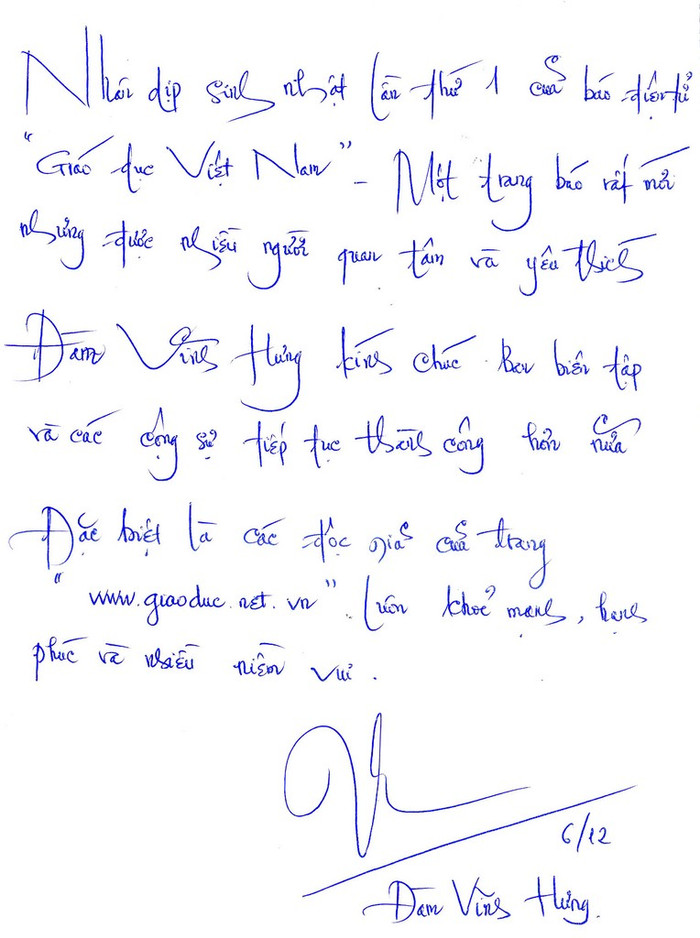 Nhân dịp sinh nhật lần thứ 1 của báo điện tử
"Giáo dục Việt Nam" – Một trang báo rất mới
nhưng được nhiều người quan tâm và yêu thích
Đàm Vĩnh Hưng kính chúc ban biên tập
và các cộng sự tiếp tục thành công hơn nữa
Đặc biệt là các độc giả của trang
"www.giaoduc.net.vn" luôn khoẻ mạnh, hạnh
phúc và nhiều niềm vui.
6/12
Đàm Vĩnh Hưng.